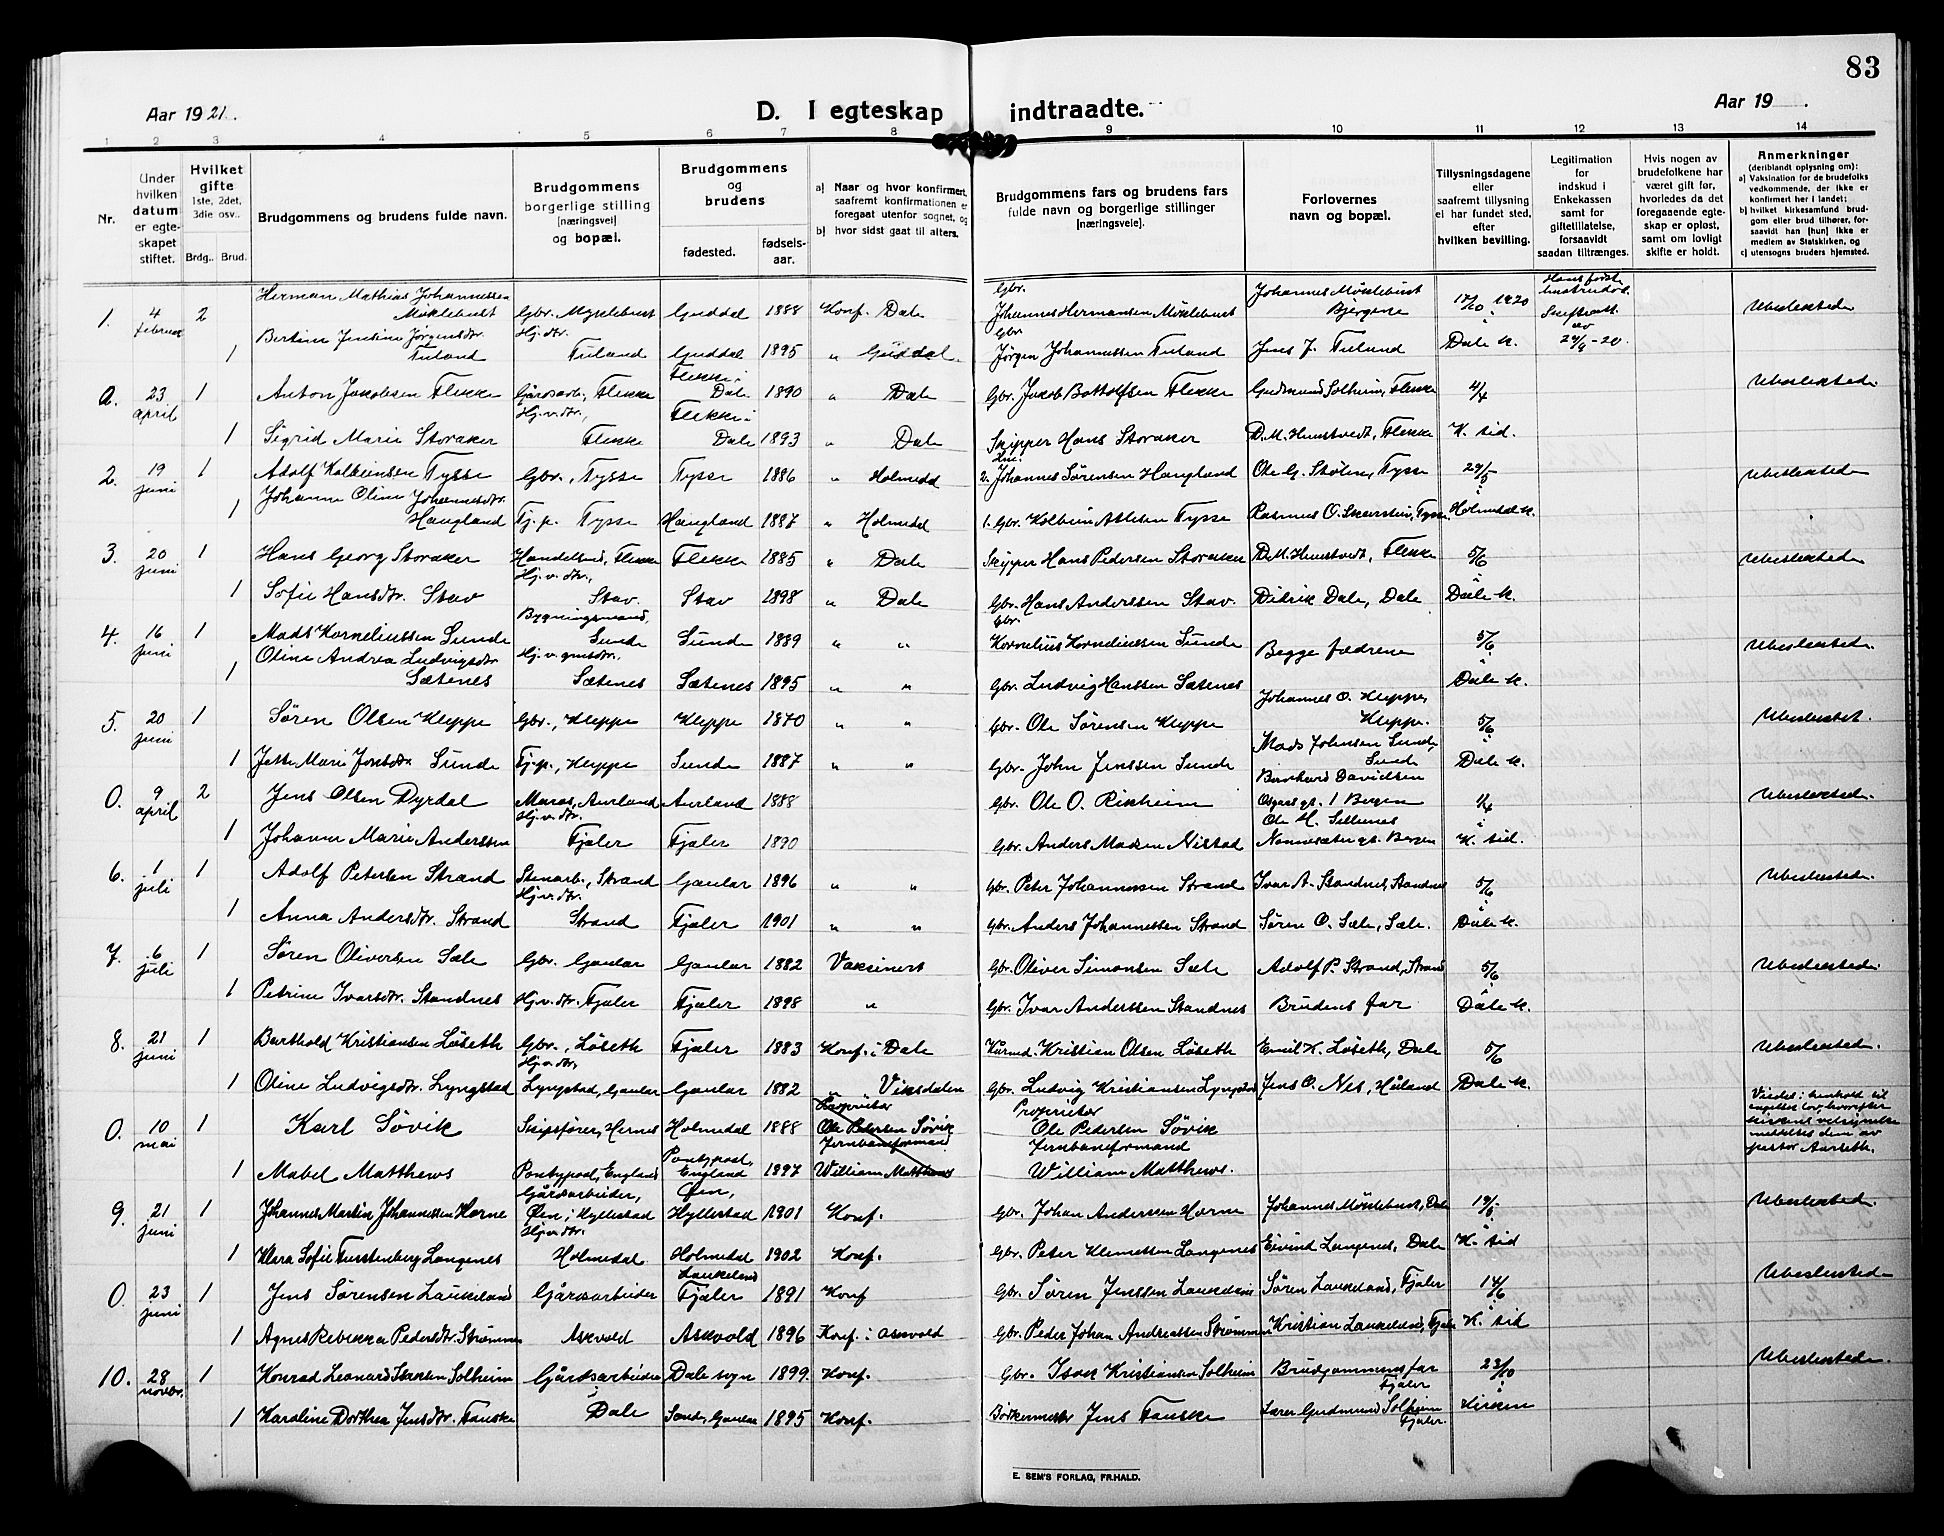 83
Aar 1921.
D. I egteskap indtraadte.
Aar 19 .
1 2 3 4 5 6 7 8 9 10 11 12 13 14
Nr.
Under hvilken datum er egte-skapet stiftet.
Hvilket gifte
1ste, 2det, 3die osv..
Brdg.. Brud.
Brudgommens og brudens fulde navn.
Brudgommens borgerlige stilling [næringsvei] og bopæl.
Brudgommens og brudens
fødested.
fødsels-aar.
a) Naar og hvor konfirmert, saafremt konfirmationen er foregaat utenfor sognet, og
b) hvor sidst gaat til alters.
Brudgommens fars og brudens fars fulde navn og borgerlige stillinger [næringsveie].
Forlovernes navn og bopæl.
Tillysningsdagene eller saafremt tillysning ei har fundet sted, efter hvilken bevilling.
Legitimation for indskud i Enkekassen samt for giftetillatelse, forsaavidt saadan tiltrænges.
Hvis nogen av brudefolkene har været gift før, hvorledes da det foregaaende egte-skap er opløst, samt om lovligt skifte er holdt.
Anmerkninger (deriblandt oplysning om):
a) Vaksination for de brudefolks vedkommende, der ikke er konfirmert her i landet;
b) hvilket kirkesamfund brud-gom eller brud tilhører, for-saavidt han [hun] ikke er medlem av Statskirken, og
c) utensogns bruders hjemsted.
1. 4 februar 2 Herman Mathias Johannessen Møklebust Gbr. Myklebust Guddal 1888 Konf. Dale Gbr. Johannes Hermansen Møklebust Johannes Møklebust Bjergene 17/10 1920 Ubeslektede
1 Bertine Jensine Jørgensdtr. Tuland Hj.dtr. Tuland Guddal 1895 " Guddal. Gbr Jørgen Johannessen Tuland Jens J. Tuland Dale k. 24/9-20.
a. 23 april 1 Anton Jakobsen Flekke Gårdsarb., Flekke Flekke i Dale 1890 " Dale Gbr. Jakob Bottolfsen Flekke Gudmund Solheim, Flekke 4/4 Ubeslektede.
1 Sigrid Marie Storaker Hj.v.dtr., Flekke Flekke i Dale 1893 " Dale Skipper Hans Storaker D.M. Hunstvedt, Flekke K. tid.
2. 19 juni 1 Adolf Kolbeinssen Tysse Gbr., Tysse Tysse 1886 " Holmedal 2. Johannes Sørensen Haugland Ole G. Stølen, Tysse 29/5 Ubeslektede
1 Johanne Oline Johannesdtr. Haugland Tj.p. Tysse Haugland 1887 " Holmedal 1. Gbr. Kolbein Atlesen Tysse Rasmus O. Skeistein, Tysse Holmedal k.
3. 20 juni 1 Hans Georg Storaker Handelsmd., Flekke Flekke 1885 " Dale Skipper Hans Pedersen Storaker D.M. Hunstvedt, Flekke 5/6 Ubeslektede
1 Sofie Hansdtr. Stav Hj.v.dtr., Stav. Stav 1898 " Dale Gbr. Hans Anderssen Stav. Didrik Dale, Dale Dale k.
4. 16 juni 1 Mads Korneliussen Sunde Bygningsmand, Sunde Sunde 1889 " " Gbr. Kornelius Korneliussen Sunde Begge fædrene 5/6 Ubeslektede.
1 Oline Andrea Ludvigsdtr Sætenes Hj.v. Sætenes Sætenes 1895 " " Gbr. Ludvig Hanssen Sætenes Dale k.
5. 20 juni 1 Søren Olsen Kleppe Gbr., Kleppe Kleppe 1870 " " Gbr. Ole Sørensen Kleppe Johannes O. Kleppe, Kleppe. 5/6 Ubeslektet.
1 Jette Marie Jonsdtr Sunde Tj.p., Kleppe Sunde 1887 " " Gbr. John Jenssen Sunde Mads Johnsen Sunde, Sunde Dale k.
0. 9 april 2 Jens Olsen Dyrdal Aurland Aurland 1888 Gbr. Ole O. Rinheim Bernhard Davidsen Bergen 1/4 Ubeslektede.
1 Johanne Marie Anderssen Hj.v.dtr. Fjaler Fjaler 1890 Gbr. Anders Madsen Nistad Ole M. Sellenes Nonnesæter gt. Bergen K. tid.
6. 1 juli 1 Adolf Petersen Strand Stenarb., Strand Gaular 1896 " " Gbr. Peter Johannessen Strand Ivar A. Standnes, Standnes 5/6 Ubeslektede.
1 Anna Andersdtr. Strand Hj.v.dtr. Strand Fjaler 1901 " " Gbr. Anders Johannessen Strand Søren O. Sæle, Sæle. Dale k.
7. 6 juli 1 Søren Oliversen Sæle Gbr. Gaular Gaular 1882 Vaksinert Gbr. Oliver Simonsen Sæle Adolf P. Strand, Strand 5/6 Ubeslektede.
1 Petrine Ivarsdtr. Standnes Hj.v.dtr. Fjaler Fjaler 1898 " Gbr. Ivar Anderssen Standnes Brudens far Dale k.
8. 21 juni 1 Barthold Kristiansen Løseth Gbr., Løseth Fjaler 1883 Konf. i Dale Kårmd. Kristian Olsen Løseth Emil K. Løseth, Dale 5/6 Ubeslektede.
1 Oline Ludvigsdtr. Lyngstad Hj.v.dtr, Lyngstad, Gaular Gaular 1882 " Viksdalen Gbr. Ludvig Kristiansen Lyngstad Jens O. Nes, Håland Dale k.
0. 10 mai 1 Karl Søvik Skipsfører, Hernes Holmedal 1888 Proprietær Ole Pedersen Søvik Proprietær Ole Pedersen Søvik Viedes i henhold til engelsk lov, hvorefter kirkens velsignelse meddeltes dem av pastor Aarseth.
1 Mabel Matthews Pontypool, England Pontypool, England 1897 Jernbaneformand William Matthews Jernbaneformand William Matthews.
9. 21 juni 1 Johannes Martin Johannessen Horne Gårdsarbeider, Øen i Hyllestad Øen, Hyllestad 1901 Konf. Gbr. Johan Anderssen Horne Johannes Møklebust, Dale 19/6 Ubeslektede.
1 Klara Sofie Furstenberg Langenes Hj.v.dtr. Holmedal Holmedal 1902 Konf. Gbr. Peter Klemetsen Langenes Eivind Langenes, Dale K. tid
0. 23 juni 1 Jens Sørensen Laukeland Gårdsarbeider Laukeland Fjaler 1891 Konf Gbr. Søren Jenssen Laukeland Søren Laukeland, Fjaler 14/6 Ubeslektede
1 Agnes Rebekka Pedersdtr. Strømmen Askvold Askvold 1896 Konf. i Askvold Gbr. Peder Johan Andreassen Strømmen Kristian Laukeland, Fjaler K. tid
10. 28 novbr. 1 Konrad Leonard Isaksen Solheim Gårdsarbeider Dale sogn 1899. Konf. Gbr. Isak Kristiansen Solheim Brudgommens far Fjaler 23/10 Ubeslektede.
1 Karoline Dorthea Jensdtr. Fauske i Dale Sande, Gaular 1895 Konf. Bødkermester Jens Fauske Lærer Gudmund Solheim Fjaler. Kirken
E. SEM'S FORLAG, FR.HALD.